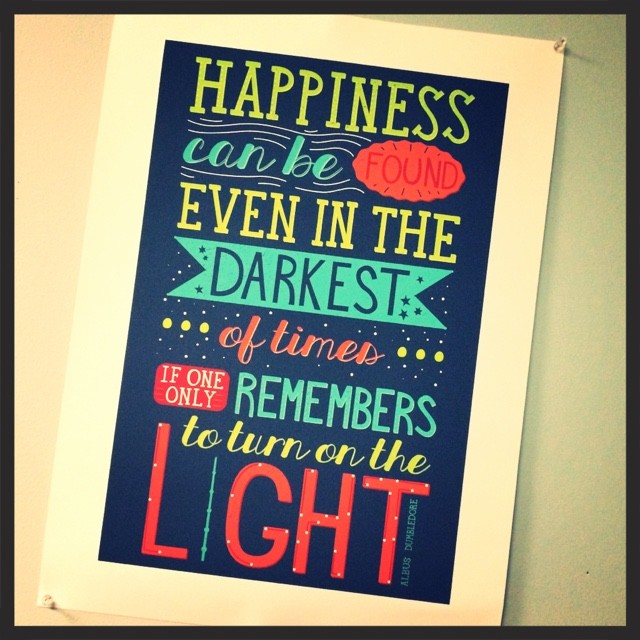 HAPPINESS
can be FOUND
EVEN IN THE
DARKEST
of times
IF ONE
ONLY
REMEMBERS
to turn on the
LIGHT
ALBUS DUMBLEDORE